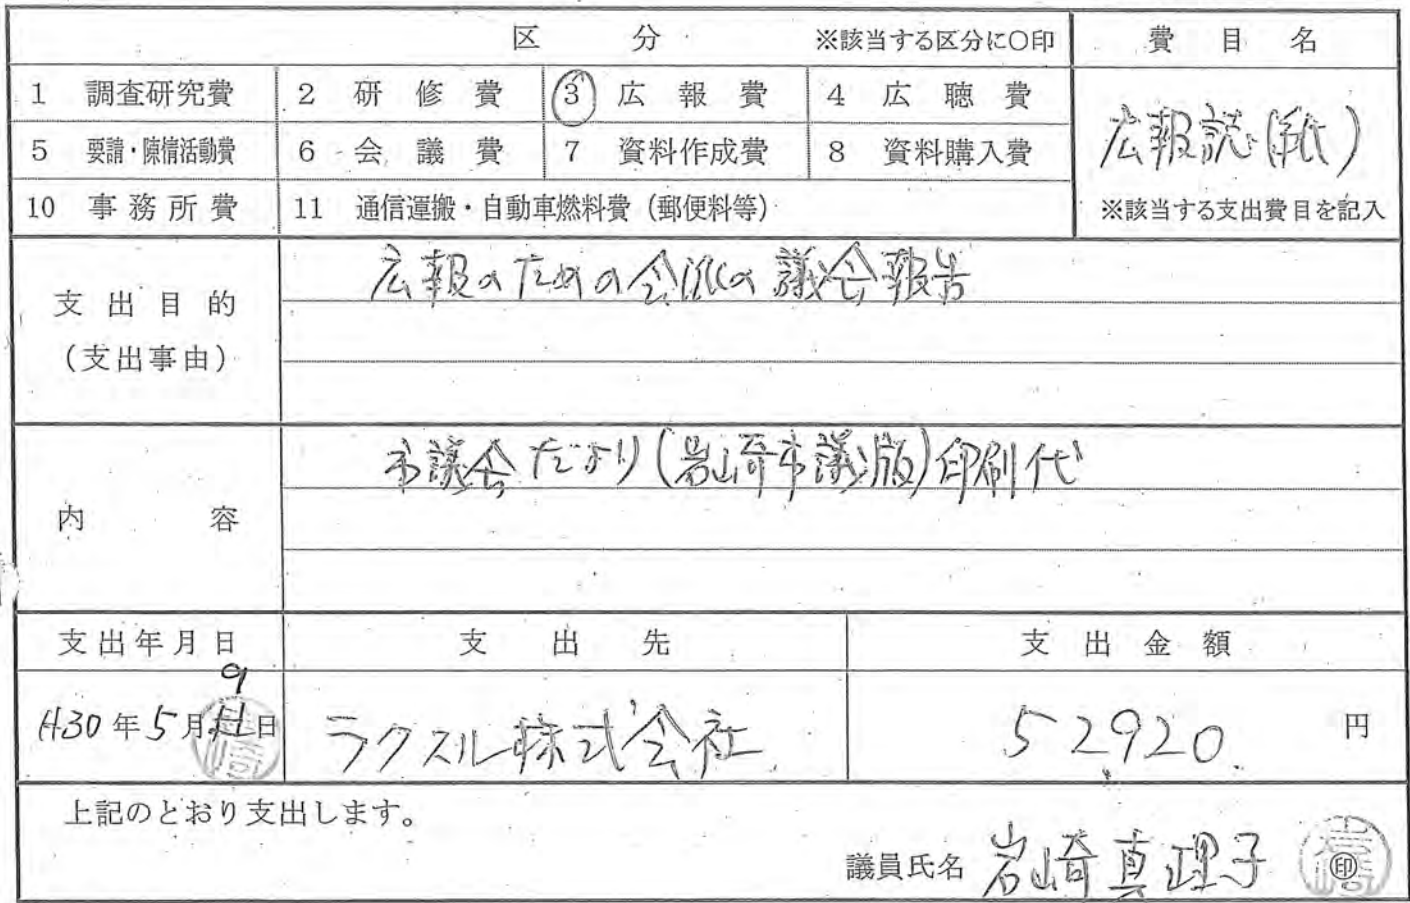 区分 ※該当する区分に○印 費目名
1 調査研究費 2 研修費 3 広報費 4 広聴費
広報誌(紙)
5 要請・陳情活動費 6 会議費 7 資料作成費 8 資料購入費
10 事務所費 11 通信運搬・自動車燃料費(郵便料等)
※該当する支出費目を記入
支出目的
(支出事由)
広報のための会派の議会報告
内容
市議会だより(岩崎市議版)印刷代
支出年月日 支出先 支出金額
9
H30年5月11日 ラクスル株式会社 52920 円
上記のとおり支出します。
議員氏名 岩崎真理子 印